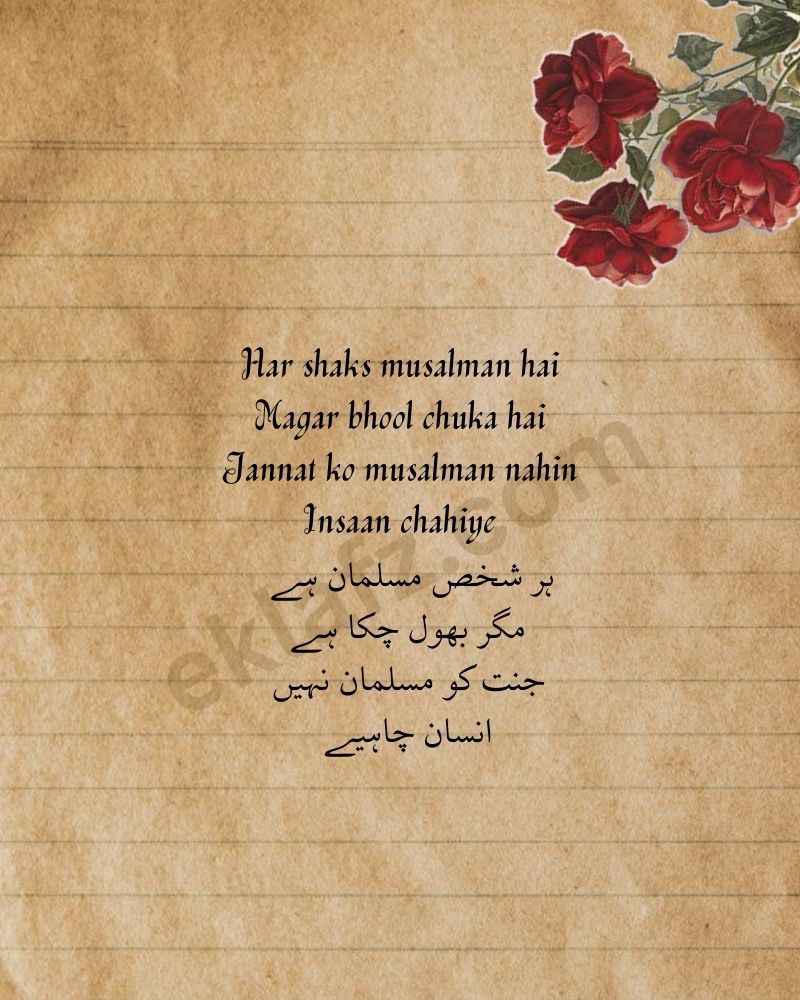 Har shaks musalman hai
Magar bhool chuka hai
Jannat ko musalman nahin
Insaan chahiye
ہر شخص مسلمان ہے
مگر بھول چکا ہے
جنت کو مسلمان نہیں
انسان چاہیے
eklafz.com